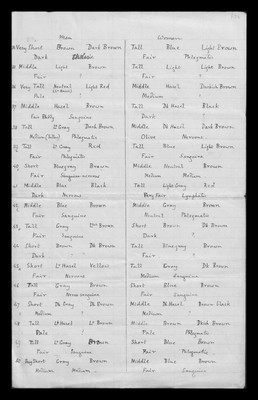 Men Women
Very Short Brown Dark Brown Tall Blue Light Brown
Dark Choleric Fair Phlegmatic
Middle Light Brown Tall Light Light Brown
Fair ? Fair ?
Very Tall Neutral Light Red Middle Hazel
Pale Medium
37 Middle Hazel Brown Tall Dk Hazel Black
Fair Sanguine Dark ?
38 Tall Lt Gray Dark Brown Middle Dk Hazel Dark Brown
Phlegmatic Olive Nervous
39 Tall Lt Gray Red Tall Blue Light Brown
Fair Phlegmatic Fair Sanguine
40 Short Bluegray Brown Middle Neutral Brown
Fair Sanguine nervous Medium Medium
41 Middle Blue Black Tall Light Gray Red
Dark Nervous Very Fair Lymphatic
42 Middle Blue Brown Middle Gray Brown
Fair Sanguine Neutral Phlegmatic
43 Tall Gray Brown Short Brown Dk Brown
Fair Sanguine Dark ?
44 Short Brown Dk Brown Tall Bluegray Brown
Dark ? Fair ?
45 Short Lt Hazel Yellow Tall Gray Dk Brown
Fair Nervous Medium Sanguine
46 Tall Gray Brown Short Blue Brown
Fair Fair Sanguine
47 Short Dk Gray Dk Brown Middle Dk Hazel Brown
Medium ? Medium ?
48 Tall Lt Hazel Lt Brown Middle Brown Brown
Pale ? Pale Phlegmatic
49 Tall Lt Gray Brown Short Blue Brown
Fair Sanguine Fair Phlegmatic
50 Short Gray Brown Middle Blue Brown
Medium Medium Fair Sanguine